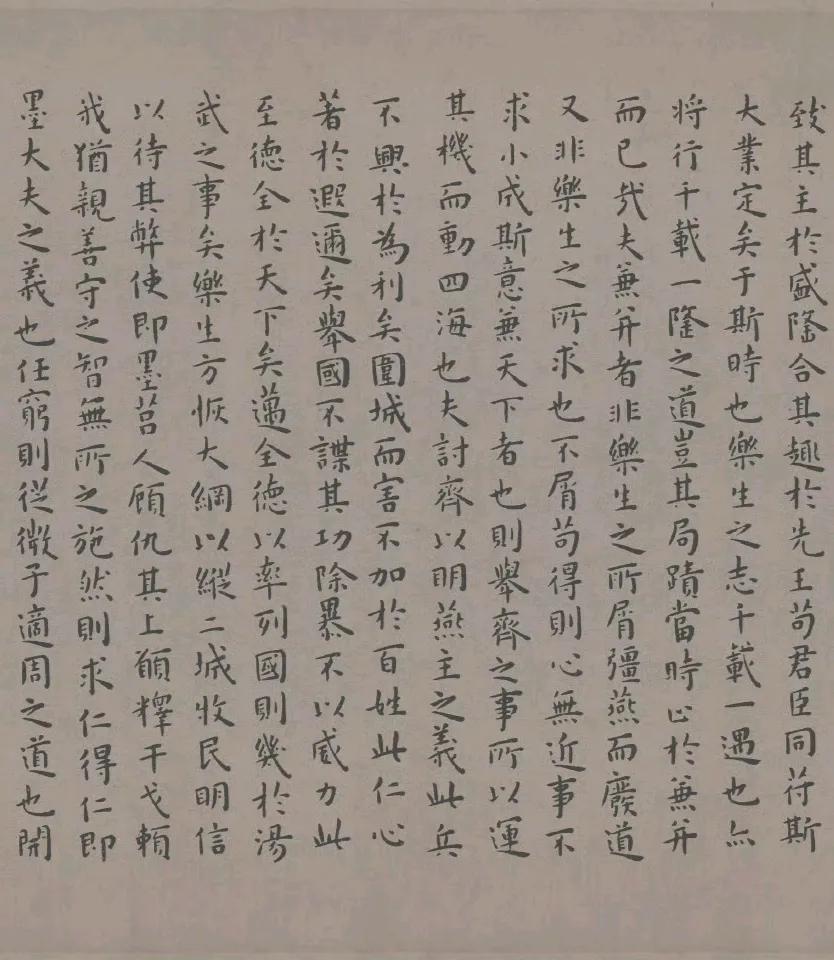 致其主於盛隆合其趣於先王苟君臣同苻斯
大業定矣于斯時也樂生之志千載一遇也亦
將行千載一隆之道豈其局蹟當時止於兼并
而已哉夫兼并者非樂生之所屑彊燕而廢道
又非樂生之所求也不屑苟得則心無近事不
求小成斯意兼天下者也則舉齊之事所以運
其機而動四海也夫討齊以明燕主之義此兵
不興於為利矣圍城而害不加於百姓此仁心
著於遐邇矣舉國不謀其功除暴不以威力此
至德全於天下矣邁全德以率列國則幾於湯
武之事矣樂生方恢大綱以縱二城收民明信
以待其弊使即墨莒人顧仇其上願釋干戈賴
我猶親善守之智無所之施然則求仁得仁即
墨大夫之義也任窮則從微子適周之道也開